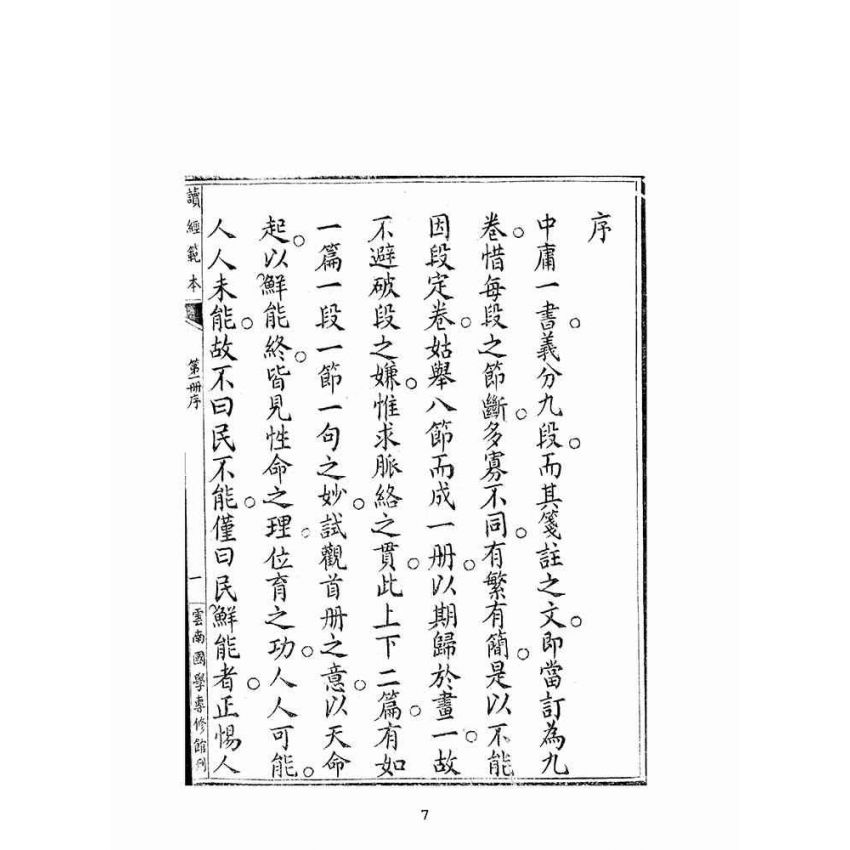 序
中庸一書義分九段而其箋註之文即當訂為九
卷惜每段之節斷多寡不同有繁有簡是以不能
因段定卷姑舉八節而成一册以期歸於畫一故
不避破段之嫌惟求脈絡之貫此上下二篇有如
一篇一段一節一句之妙試觀首册之意以天命
起以鮮能終皆見性命之理位育之功人人可能
人人未能故不曰民不能僅曰民鮮能者正惕人
讀經範本
第一册序
一
雲南國學專修館刋
7